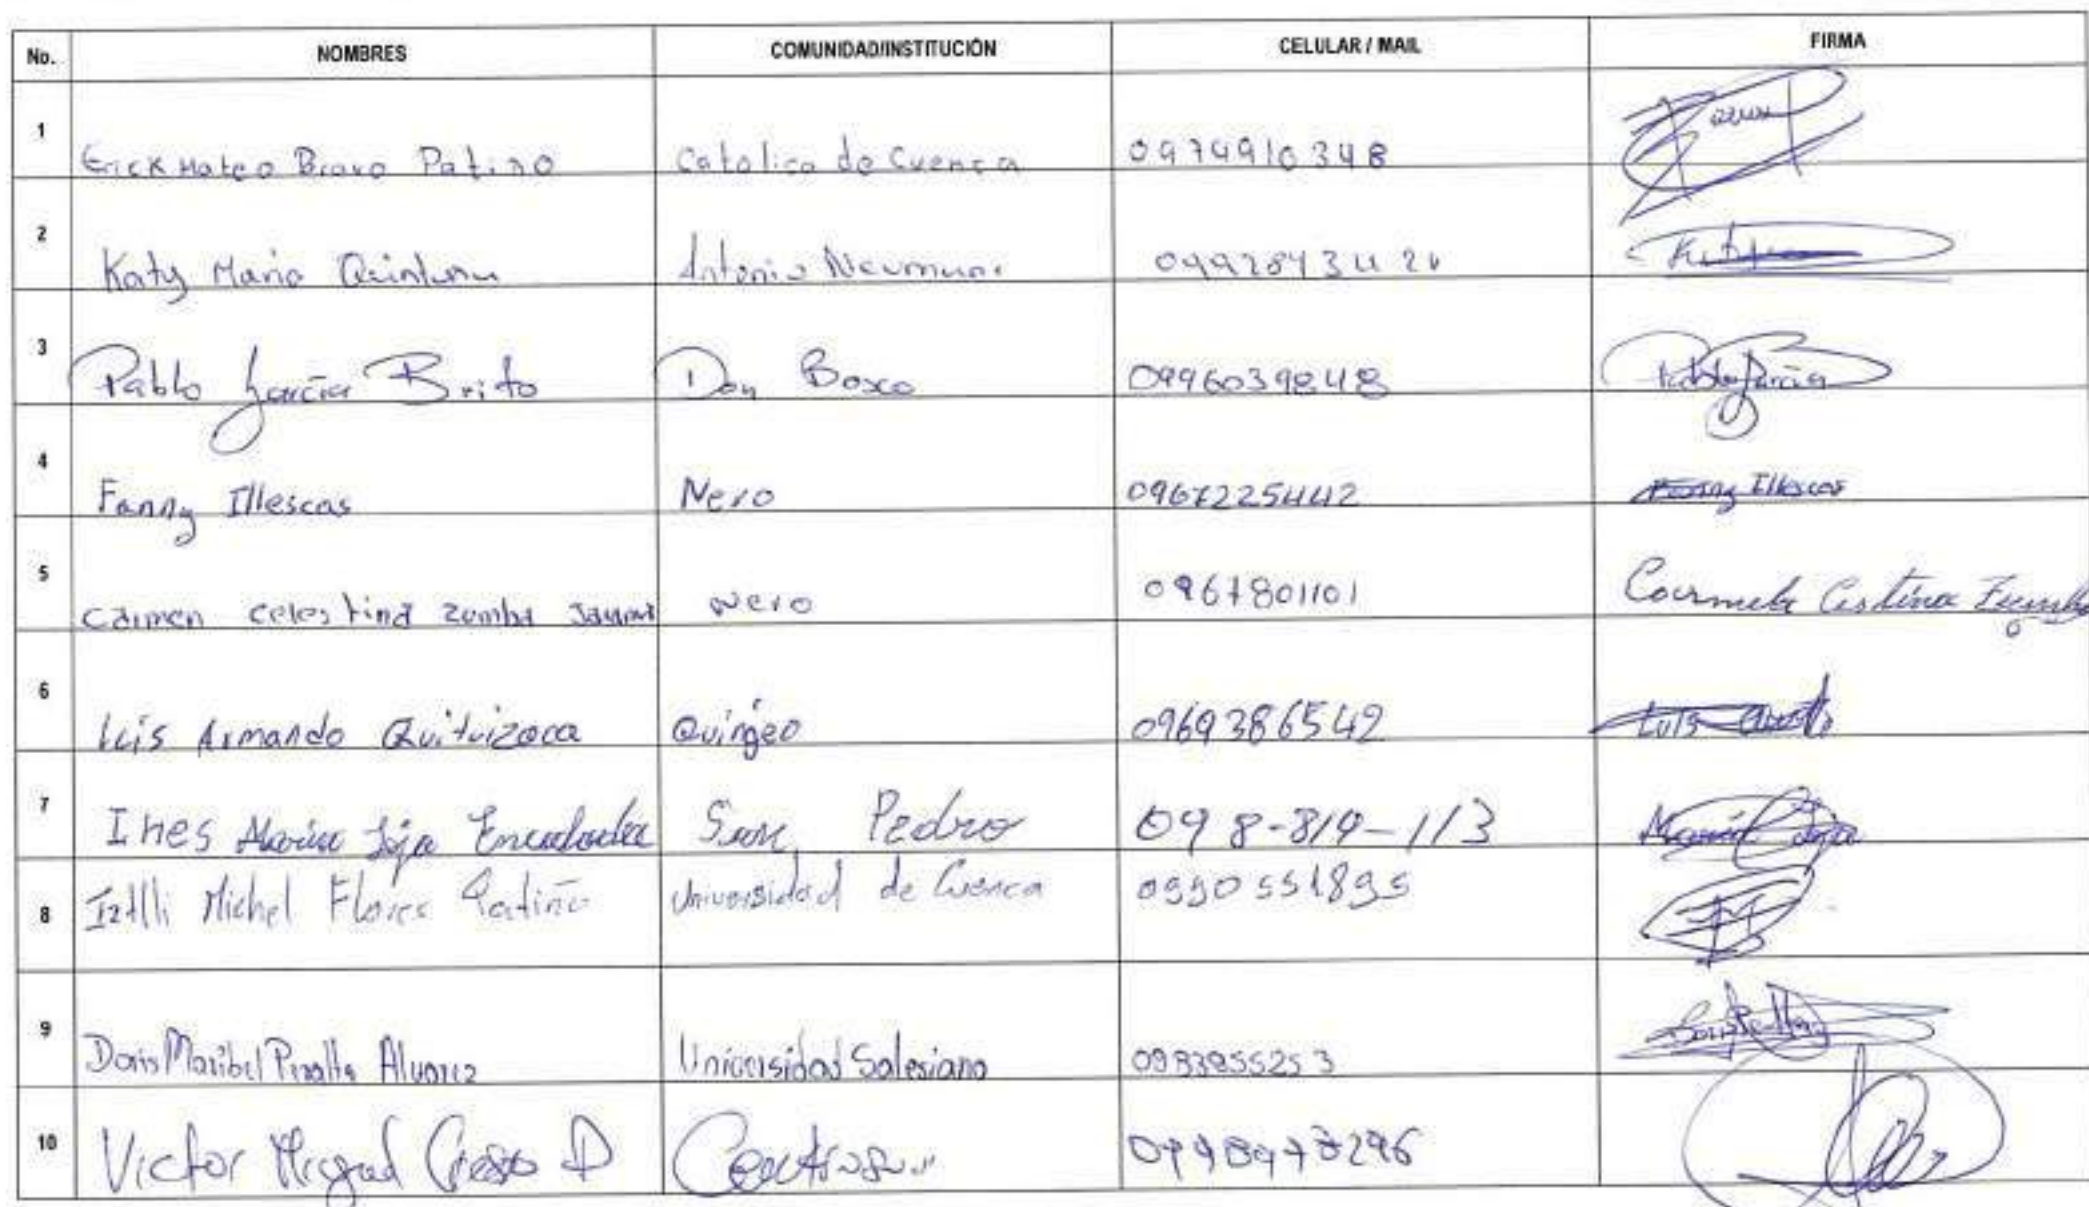 No. NOMBRES COMUNIDAD/INSTITUCIÓN CELULAR / MAIL FIRMA
1 Erick Mateo Bravo Patiño Catolica de Cuenca 0974910348
2 Katy Maria Quintuna Antonio Neumane
3 Pablo García Brito Don Bosco 0996039848 Pablo García
4 Fanny Illescas Nero 0967225442 Fanny Illescas
5 Carmen Celestina Zumba Nero 0967801101
6 Luis Armando Quituizaca Quingeo 0969386542 Luis
7 Ines Maria Loja Encalada San Pedro 098-819-113 Maria Loja
8 Iztlli Michel Flores Patiño Universidad de Cuenca 0990551895
9 Doris Maribel Peralta Alvarez Universidad Salesiana 0983955253
10 Victor Miguel Crespo D Centrosur